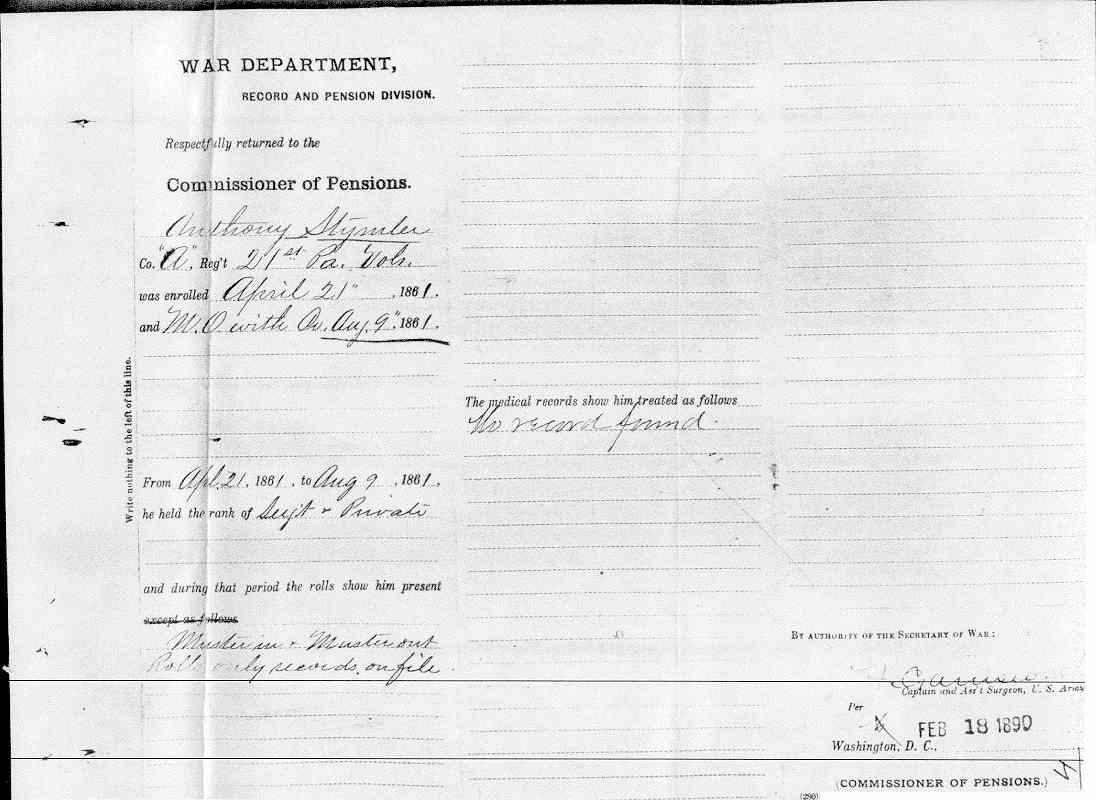 WAR DEPARTMENT,
RECORD AND PENSION DIVISION.
Respectfully returned to the
Commissioner of Pensions.
Anthony
Co. "A", Reg't 21st Pa. Vols.
was enrolled April 21", 1861.
and M.O. with Co. Aug. 9", 1861.
Write nothing to the left of this line.
From Apl. 21, 1861, to Aug 9, 1861,
he held the rank of Sergt & Private
and during that period the rolls show him present
except as follows
Muster in & Muster out
Rolls only records on file.
The medical records show him treated as follows
No record found.
BY AUTHORITY OF THE SECRETARY OF WAR:
Captain and Ass't Surgeon, U. S. Army
Per
FEB 18 1890
Washington, D. C.,
(COMMISSIONER OF PENSIONS.)
(290)